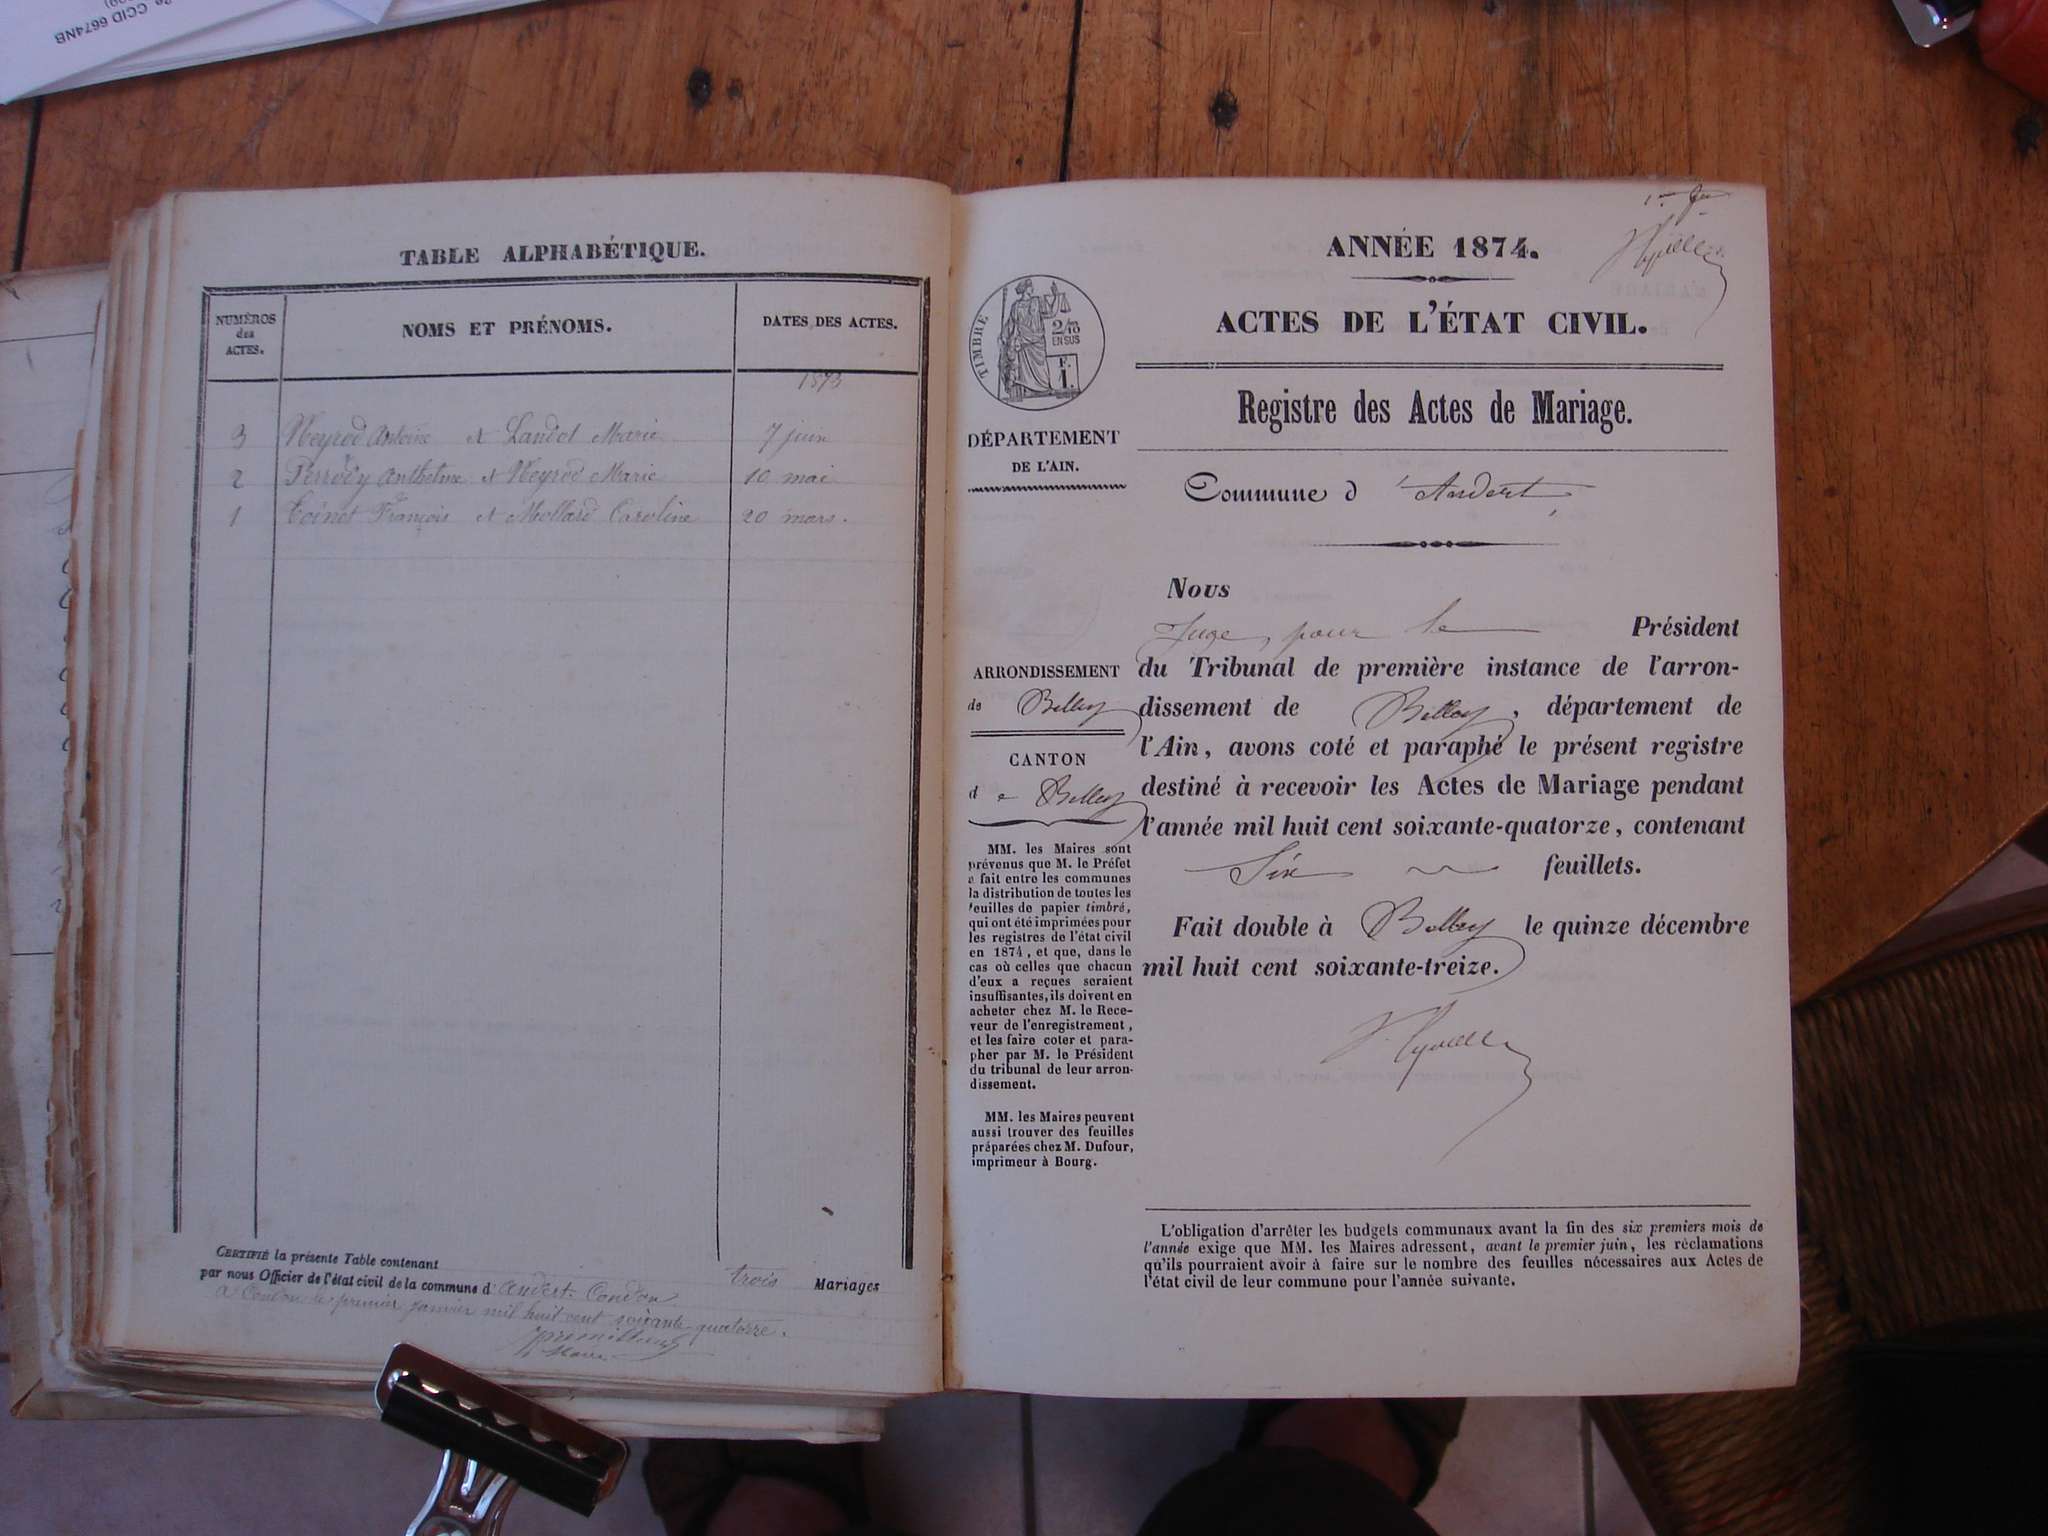 CCID 6674NB
TABLE ALPHABÉTIQUE.
NUMÉROS des ACTES.
NOMS ET PRÉNOMS.
DATES DES ACTES.
1873
3 Neyrod Antoine et Landot Marie 7 juin
2 Perrody Anthelme et Neyrod Marie 10 mai
1 Toinet François et Mollard Caroline 20 mars.
CERTIFIÉ la présente Table contenant trois Mariages
par nous Officier de l'état civil de la commune d'Andert-Condon
à Condon le premier janvier mil huit cent soixante quatorze.
Maire
ANNÉE 1874.
ACTES DE L'ÉTAT CIVIL.
Registre des Actes de Mariage.
Commune d'Andert
TIMBRE
2/10
EN SUS
F.
1.
DÉPARTEMENT
DE L'AIN.
ARRONDISSEMENT
de Belley
CANTON
de Belley
MM. les Maires sont
prévenus que M. le Préfet
a fait entre les communes
la distribution de toutes les
feuilles de papier timbré,
qui ont été imprimées pour
les registres de l'état civil
en 1874, et que, dans le
cas où celles que chacun
d'eux a reçues seraient
insuffisantes, ils doivent en
acheter chez M. le Rece-
veur de l'enregistrement,
et les faire coter et para-
pher par M. le Président
du tribunal de leur arron-
dissement.
MM. les Maires peuvent
aussi trouver des feuilles
préparées chez M. Dufour,
imprimeur à Bourg.
Nous
Juge, pour le Président
du Tribunal de première instance de l'arron-
dissement de Belley, département de
l'Ain, avons coté et paraphé le présent registre
destiné à recevoir les Actes de Mariage pendant
l'année mil huit cent soixante-quatorze, contenant
Six feuillets.
Fait double à Belley le quinze décembre
mil huit cent soixante-treize.
L'obligation d'arrêter les budgets communaux avant la fin des six premiers mois de
l'année exige que MM. les Maires adressent, avant le premier juin, les réclamations
qu'ils pourraient avoir à faire sur le nombre des feuilles nécessaires aux Actes de
l'état civil de leur commune pour l'année suivante.